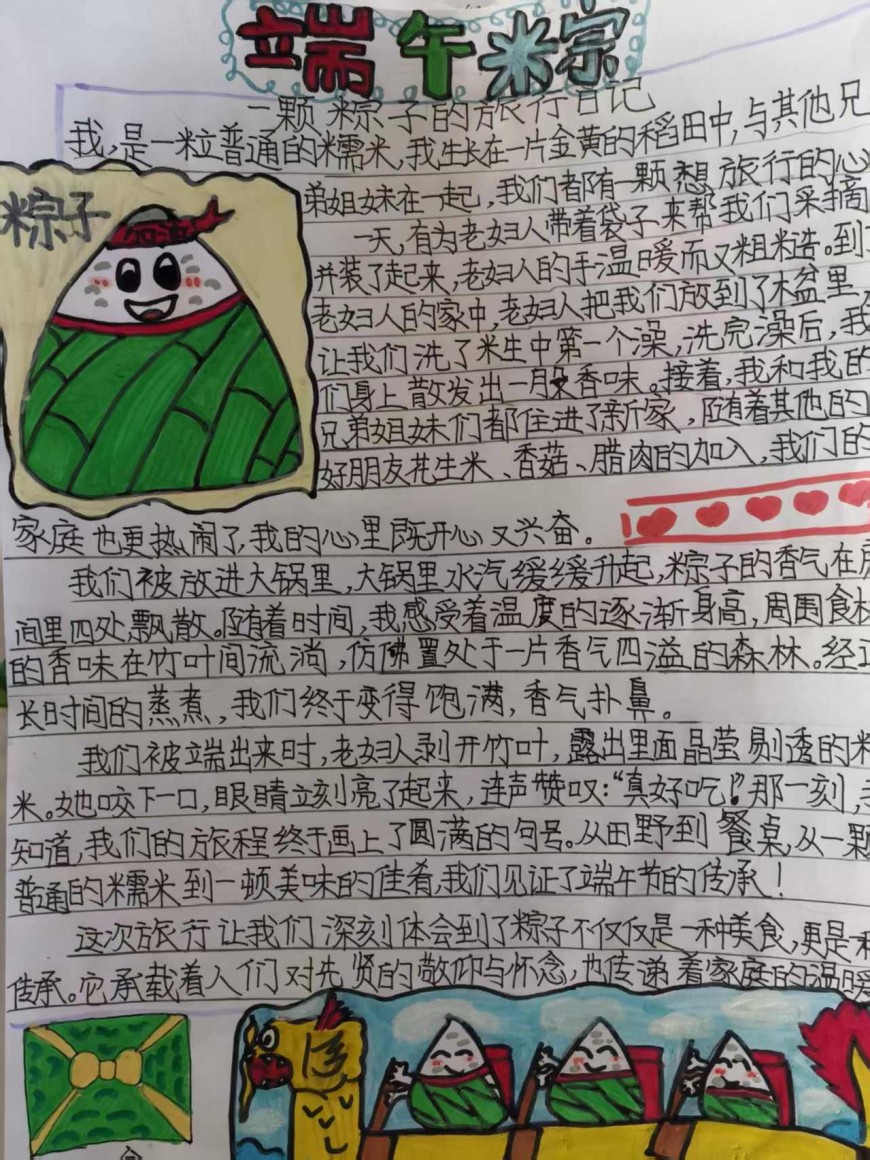 端午粽
一颗粽子的旅行日记
我,是一粒普通的糯米,我生长在一片金黄的稻田中,与其他兄
粽子
弟姐妹在一起,我们都有一颗想旅行的心
一天,有为老妇人带着袋子来帮我们采摘
并装了起来,老妇人的手温暖而又粗糙。到
老妇人的家中,老妇人把我们放到了木盆里
让我们洗了米生中第一个澡,洗完澡后,我
们身上散发出一股香味。接着,我和我的
兄弟姐妹们都住进了新家,随着其他的
好朋友花生米、香菇、腊肉的加入,我们的
家庭也更热闹了,我的心里既开心又兴奋。
我们被放进大锅里,大锅里水汽缓缓升起,粽子的香气在房
间里四处飘散。随着时间,我感受着温度的逐渐身高,周围食材
的香味在竹叶间流淌,仿佛置处于一片香气四溢的森林。经过
长时间的蒸煮,我们终于变得饱满,香气扑鼻。
我们被端出来时,老妇人剥开竹叶,露出里面晶莹剔透的米
米。她咬下一口,眼睛立刻亮了起来,连声赞叹:“真好吃!”那一刻,
知道,我们的旅程终于画上了圆满的句号。从田野到餐桌,从一颗
普通的糯米到一顿美味的佳肴,我们见证了端午节的传承!
这次旅行让我们深刻体会到了粽子不仅仅是一种美食,更是
传承。它承载着人们对先贤的敬仰与怀念,也传递着家庭的温暖